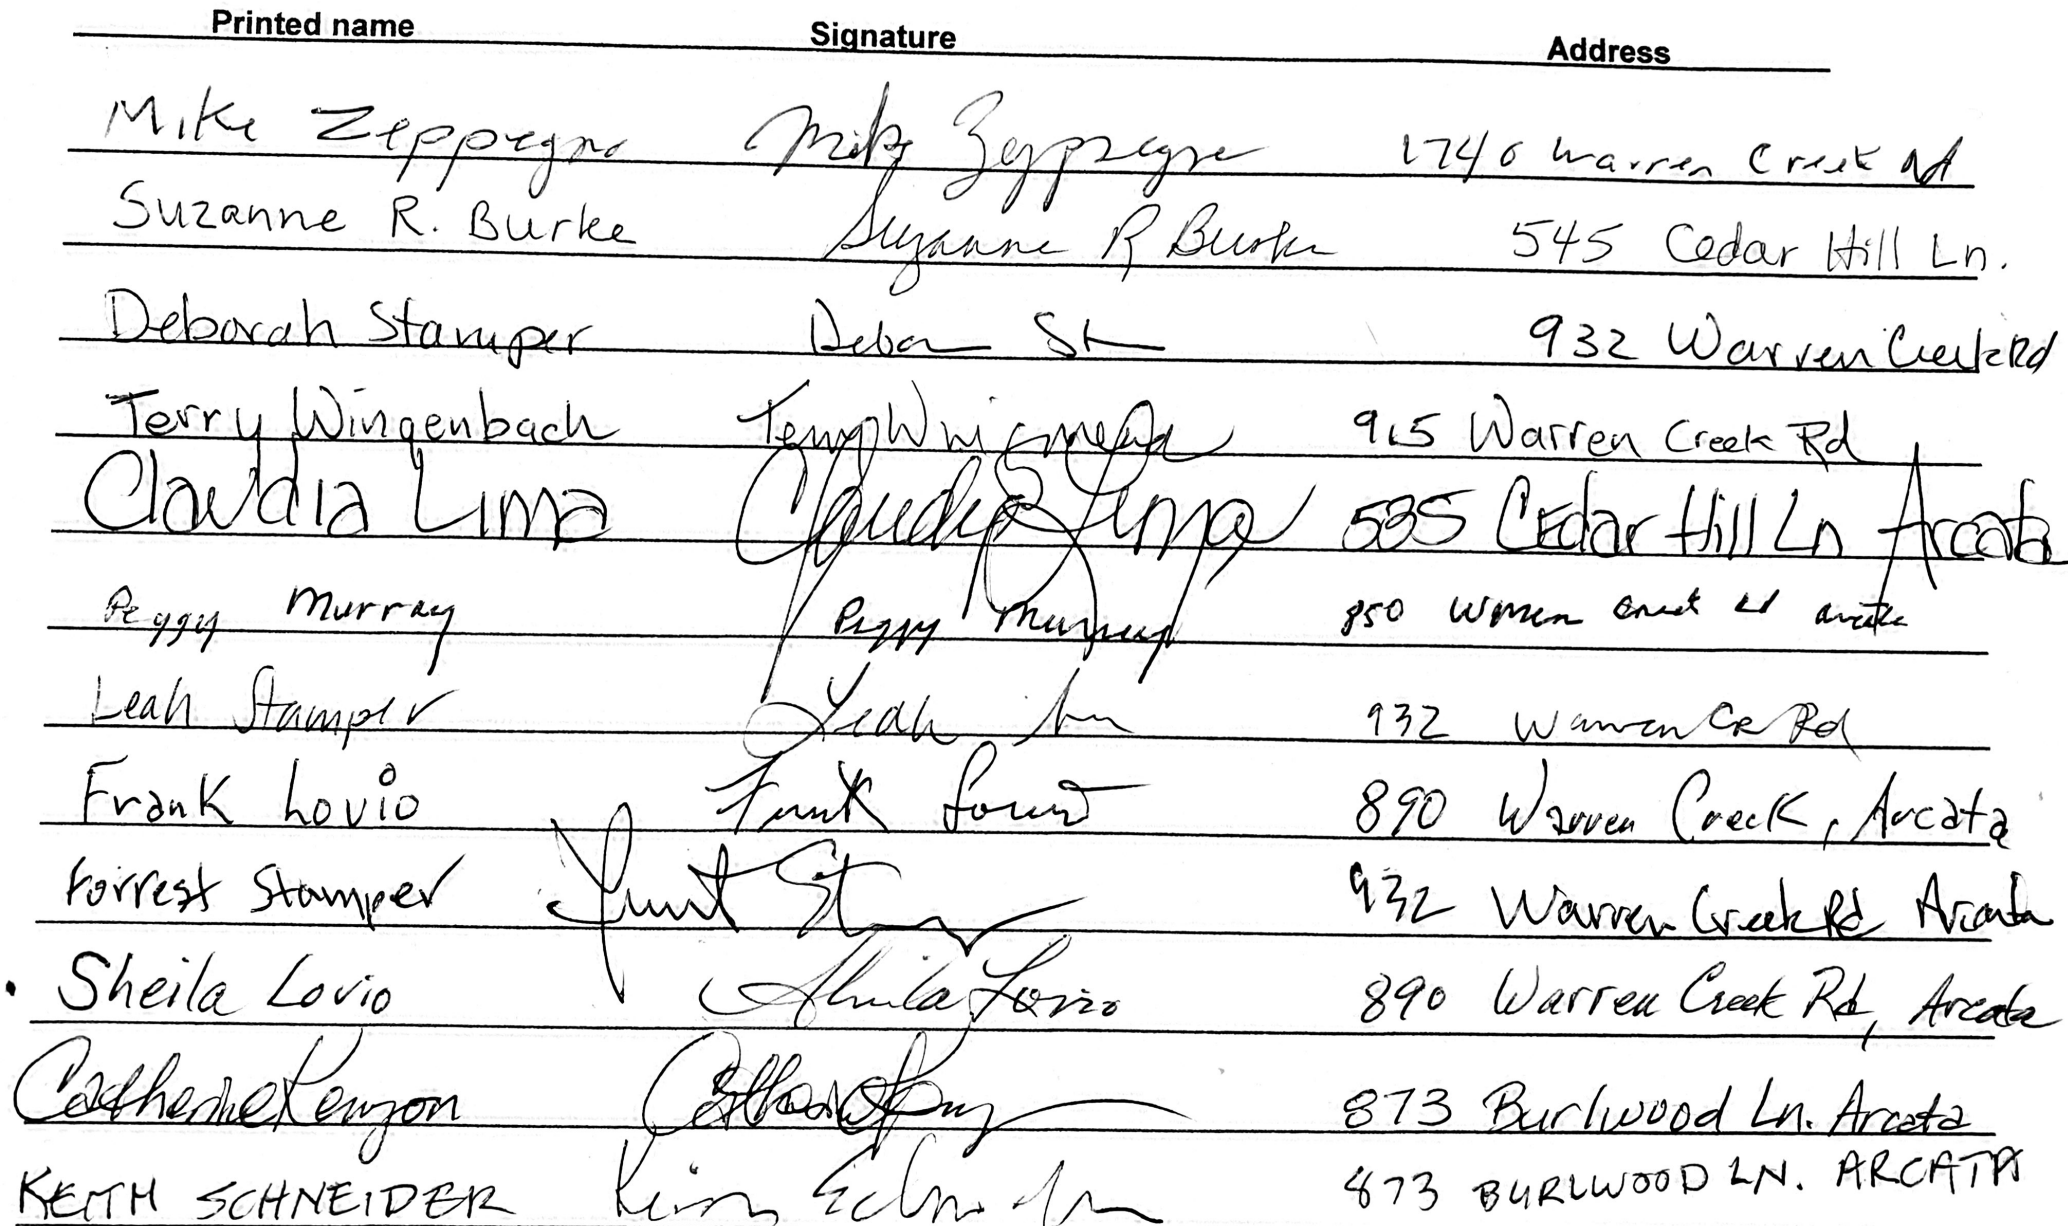 Printed name Signature Address
Mike Zeppegno Mike Zeppegno 1740 Warren Creek Rd
Suzanne R. Burke Suzanne R Burke 545 Cedar Hill Ln.
Deborah Stamper Debor St 932 Warren Creek Rd
Terry Wingenbach Terry 915 Warren Creek Rd
Claudia Lima Claudia Lima 535 Cedar Hill Ln Arcata
Peggy Murray Peggy Murray 850 Warren Creek Rd Arcata
Leah Stamper Leah 932 Warren CR Rd
Frank Lovio Frank Lovio 890 Warren Creek, Arcata
Forrest Stamper 932 Warren Creek Rd Arcata
Sheila Lovio Sheila Lovio 890 Warren Creek Rd, Arcata
Catherine Kenyon 873 Burlwood Ln. Arcata
KEITH SCHNEIDER 873 BURLWOOD LN. ARCATA